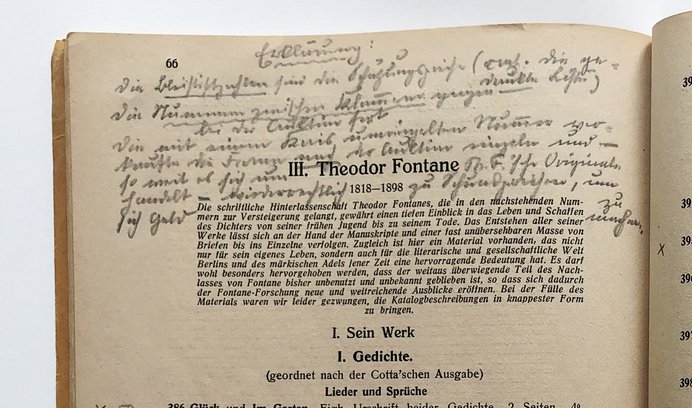 66
Erklärung:
Die Bleistiftzahlen sind die Schätzungspreise (entf. die ge-
druckte Liste)
Die Nummern zwischen Klammern gegen
bei der Auktion fort
Die mit einem Kreis umringelten Nummer ver-
kaufte die Firma nach der Auktion einzeln und –
so weit es sich um Th. F.'sche Originale
handelt – widerrechtlich zu Schundpreisen, um
sich Geld zu machen.
III. Theodor Fontane
1818—1898
Die schriftliche Hinterlassenschaft Theodor Fontanes, die in den nachstehenden Num-
mern zur Versteigerung gelangt, gewährt einen tiefen Einblick in das Leben und Schaffen
des Dichters von seiner frühen Jugend bis zu seinem Tode. Das Entstehen aller seiner
Werke lässt sich an der Hand der Manuskripte und einer fast unübersehbaren Masse von
Briefen bis ins Einzelne verfolgen. Zugleich ist hier ein Material vorhanden, das nicht
nur für sein eigenes Leben, sondern auch für die literarische und gesellschaftliche Welt
Berlins und des märkischen Adels jener Zeit eine hervorragende Bedeutung hat. Es darf
wohl besonders hervorgehoben werden, dass der weitaus überwiegende Teil des Nach-
lasses von Fontane bisher unbenutzt und unbekannt geblieben ist, so dass sich dadurch
der Fontane-Forschung neue und weitreichende Ausblicke eröffnen. Bei der Fülle des
Materials waren wir leider gezwungen, die Katalogbeschreibungen in knappester Form
zu bringen.
I. Sein Werk
I. Gedichte.
(geordnet nach der Cotta'schen Ausgabe)
Lieder und Sprüche
386 Glück und Im Garten. Eigh. Urschrift beider Gedichte. 2 Seiten. 4°